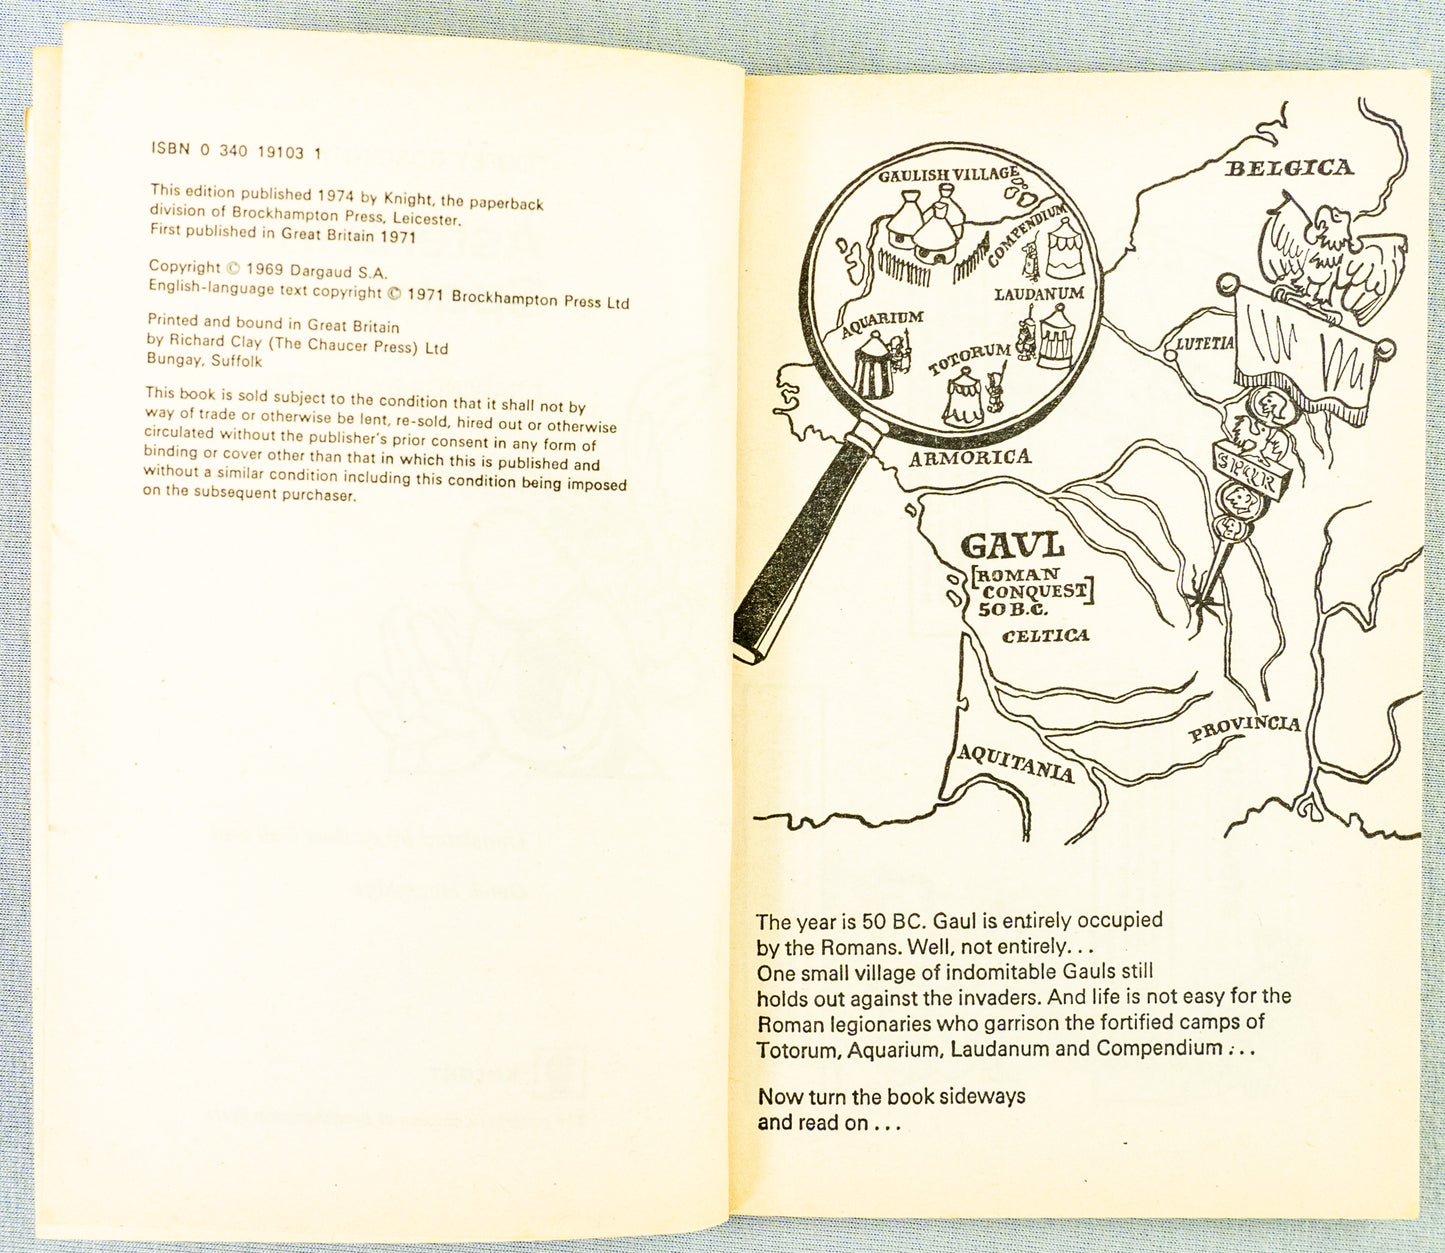 ISBN 0 340 19103 1
This edition published 1974 by Knight, the paperback
division of Brockhampton Press, Leicester.
First published in Great Britain 1971
Copyright © 1969 Dargaud S.A.
English-language text copyright © 1971 Brockhampton Press Ltd
Printed and bound in Great Britain
by Richard Clay (The Chaucer Press) Ltd
Bungay, Suffolk
This book is sold subject to the condition that it shall not by
way of trade or otherwise be lent, re-sold, hired out or otherwise
circulated without the publisher's prior consent in any form of
binding or cover other than that in which this is published and
without a similar condition including this condition being imposed
on the subsequent purchaser.
BELGICA
GAULISH VILLAGE
COMPENDIUM
LAUDANUM
AQUARIUM
TOTORUM
LUTETIA
ARMORICA
SPQR
GAUL
[ROMAN
CONQUEST]
50 B.C.
CELTICA
PROVINCIA
AQUITANIA
The year is 50 BC. Gaul is entirely occupied
by the Romans. Well, not entirely...
One small village of indomitable Gauls still
holds out against the invaders. And life is not easy for the
Roman legionaries who garrison the fortified camps of
Totorum, Aquarium, Laudanum and Compendium ...
Now turn the book sideways
and read on ...